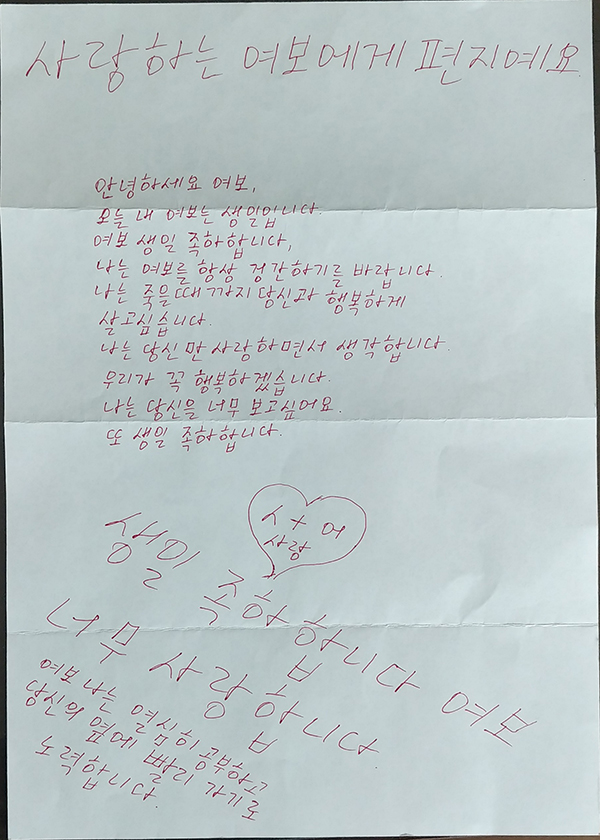 사랑하는 여보에게 편지예요
안녕하세요 여보,
오늘 내 여보는 생일입니다.
여보 생일 족하합니다,
나는 여보를 항상 겅간하기를 바랍니다.
나는 죽을때까지 당신과 행복하게
살고십습니다.
나는 당신만 사랑하면서 생각합니다.
우리가 꼭 행복하겠습니다.
나는 당신을 너무 보고싶어요.
또 생일 족하합니다.
사랑
생일 족하합니다 여보
너무 사랑합니다.
여보 나는 열심히 공부하고
당신의 옆에 빨리 가기로
노력합니다.